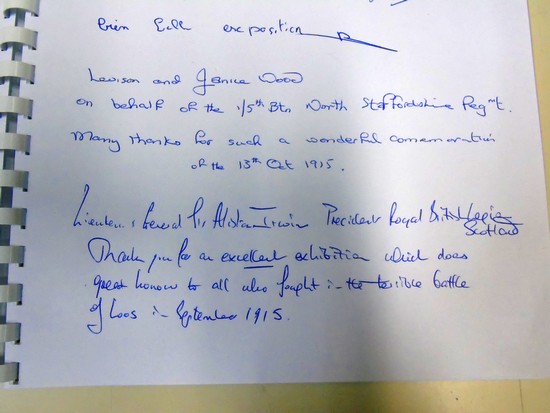 bien belle exposition
Levison and Janice Wood
on behalf of the 1/5th Btn North Staffordshire Reg'mt.
Many thanks for such a wonderful commemoration
of the 13th Oct 1915.
Lieutenant General Sir Alistair Irwin President Royal British Legion
Scotland
Thank you for an excellent exhibition which does
great honour to all who fought in the terrible battle
of Loos in September 1915.